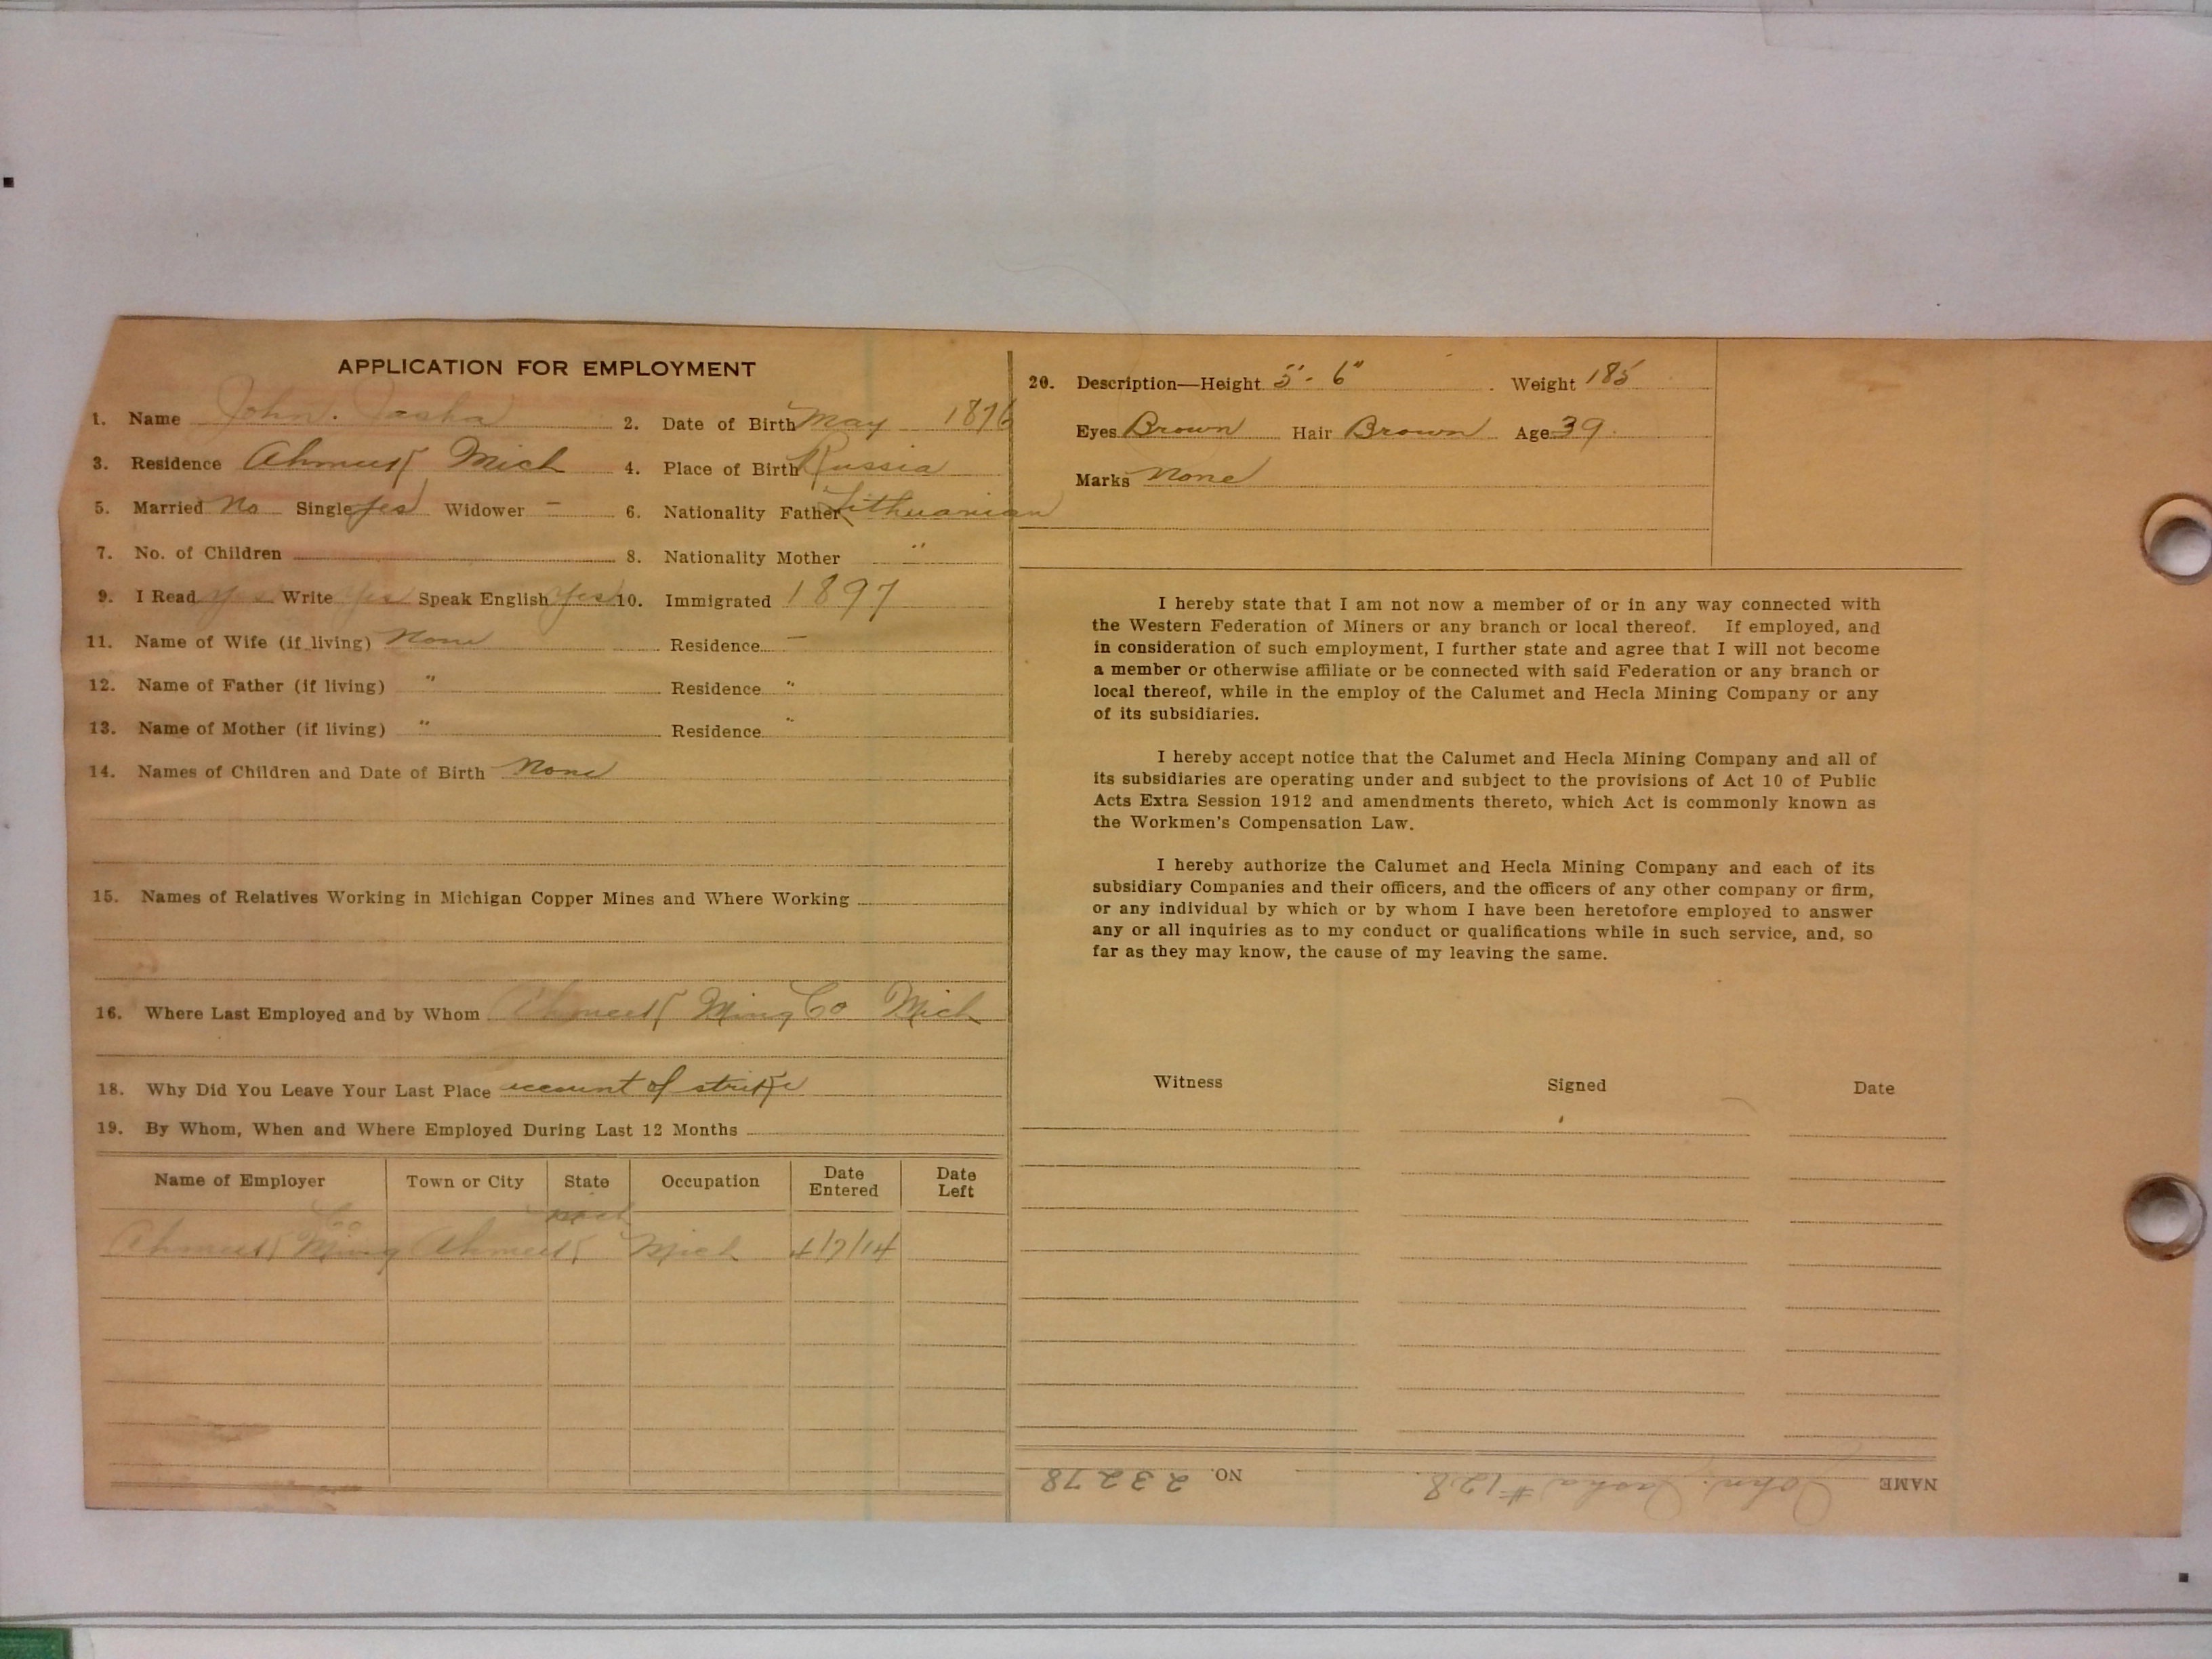 APPLICATION FOR EMPLOYMENT
1. Name John. 2. Date of Birth May 1876
3. Residence Ahmeek Mich 4. Place of Birth Russia
5. Married No Single yes Widower — 6. Nationality Father Lithuanian
7. No. of Children 8. Nationality Mother "
9. I Read yes Write yes Speak English yes 10. Immigrated 1897
11. Name of Wife (if living) None Residence —
12. Name of Father (if living) " Residence "
13. Name of Mother (if living) " Residence "
14. Names of Children and Date of Birth None
15. Names of Relatives Working in Michigan Copper Mines and Where Working
16. Where Last Employed and by Whom Ahmeek Ming Co Mich
18. Why Did You Leave Your Last Place account of strike
19. By Whom, When and Where Employed During Last 12 Months
Name of Employer Town or City State Occupation Date Entered Date Left
Ahmeek Ming Co Ahmeek Mich
20. Description—Height 5'- 6" Weight 185
Eyes Brown Hair Brown Age 39
Marks None
I hereby state that I am not now a member of or in any way connected with
the Western Federation of Miners or any branch or local thereof. If employed, and
in consideration of such employment, I further state and agree that I will not become
a member or otherwise affiliate or be connected with said Federation or any branch or
local thereof, while in the employ of the Calumet and Hecla Mining Company or any
of its subsidiaries.
I hereby accept notice that the Calumet and Hecla Mining Company and all of
its subsidiaries are operating under and subject to the provisions of Act 10 of Public
Acts Extra Session 1912 and amendments thereto, which Act is commonly known as
the Workmen's Compensation Law.
I hereby authorize the Calumet and Hecla Mining Company and each of its
subsidiary Companies and their officers, and the officers of any other company or firm,
or any individual by which or by whom I have been heretofore employed to answer
any or all inquiries as to my conduct or qualifications while in such service, and, so
far as they may know, the cause of my leaving the same.
Witness Signed Date
NAME John. #128 NO. 23278